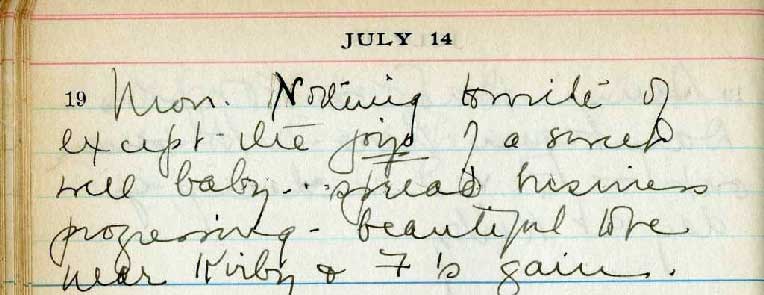 JULY 14
19 Mon. Nothing to write of
except the joys of a sweet
well baby. spread business
progressing - beautiful to be
near Kirby & F's gain.